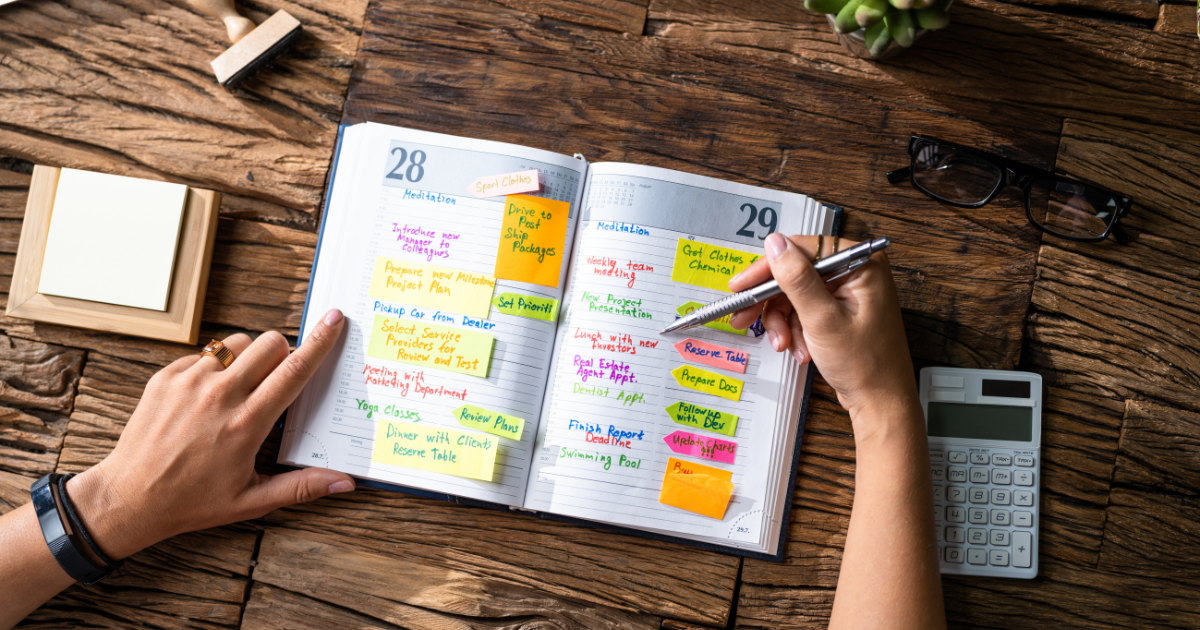 28
Sport Clothes
Meditation
Drive to
Post
Ship
Packages
Introduce new
Manager to
Colleagues
Prepare new Milestone
Project Plan
Set Prioriti
Pickup Car from Dealer
Select Service
Providers for
Review and Test
Meeting with
Marketing Department
Yoga Classes
Review Plans
Dinner with Clients
Reserve Table
29
Meditation
Get Clothes
Chemical
Weekly team
meeting
New Project
Presentation
Lunch with new
Investors
Reserve Table
Real Estate
Agent Appt.
Prepare Docs
Dentist Appt.
Followup
with Dev
Finish Report
Deadline
Update Charts
Swimming Pool